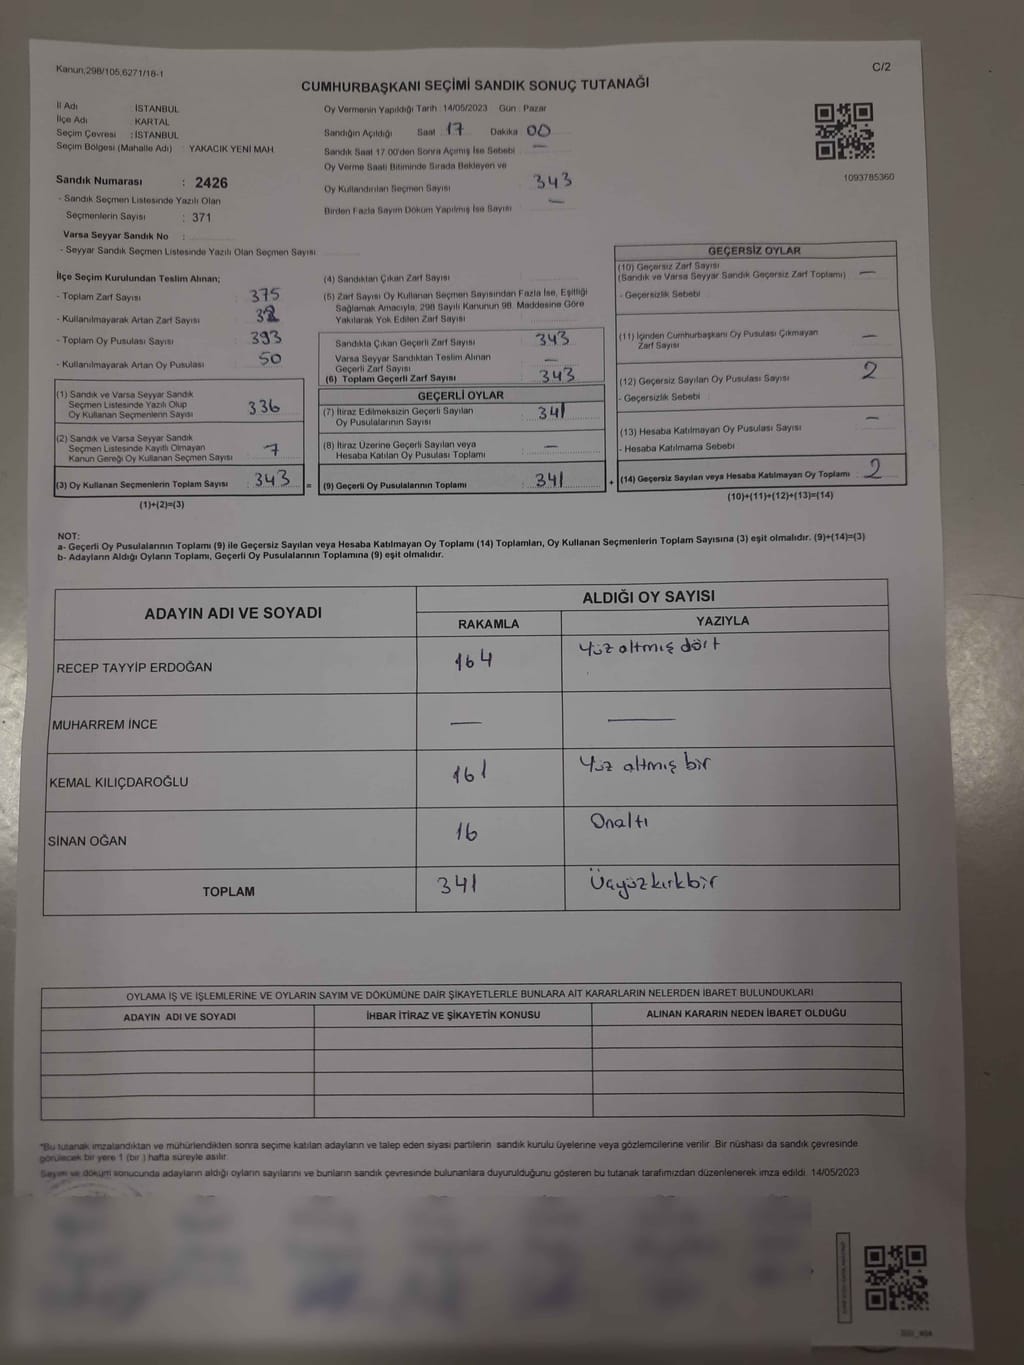 Kanun;298/105,6271/18-1
C/2
CUMHURBAŞKANI SEÇİMİ SANDIK SONUÇ TUTANAĞI
İl Adı : İSTANBUL
İlçe Adı : KARTAL
Seçim Çevresi : İSTANBUL
Seçim Bölgesi (Mahalle Adı) : YAKACIK YENİ MAH.
Sandık Numarası : 2426
- Sandık Seçmen Listesinde Yazılı Olan
Seçmenlerin Sayısı : 371
Varsa Seyyar Sandık No :
- Seyyar Sandık Seçmen Listesinde Yazılı Olan Seçmen Sayısı
Oy Vermenin Yapıldığı Tarih 14/05/2023 Gün : Pazar
Sandığın Açıldığı Saat 17 Dakika 00
Sandık Saat 17.00'den Sonra Açımış İse Sebebi —
Oy Verme Saati Bitiminde Sırada Bekleyen ve
Oy Kullandırılan Seçmen Sayısı 343
Birden Fazla Sayım Döküm Yapılmış İse Sayısı —
1093785360
İlçe Seçim Kurulundan Teslim Alınan;
- Toplam Zarf Sayısı : 375
- Kullanılmayarak Artan Zarf Sayısı : 32
- Toplam Oy Pusulası Sayısı : 393
- Kullanılmayarak Artan Oy Pusulası : 50
(1) Sandık ve Varsa Seyyar Sandık
Seçmen Listesinde Yazılı Olup
Oy Kullanan Seçmenlerin Sayısı : 336
(2) Sandık ve Varsa Seyyar Sandık
Seçmen Listesinde Kayıtlı Olmayan
Kanun Gereği Oy Kullanan Seçmen Sayısı : 7
(3) Oy Kullanan Seçmenlerin Toplam Sayısı : 343 =
(1)+(2)=(3)
(4) Sandıktan Çıkan Zarf Sayısı
(5) Zarf Sayısı Oy Kullanan Seçmen Sayısından Fazla İse, Eşitliği
Sağlamak Amacıyla, 298 Sayılı Kanunun 98. Maddesine Göre
Yakılarak Yok Edilen Zarf Sayısı
Sandıkta Çıkan Geçerli Zarf Sayısı : 343
Varsa Seyyar Sandıktan Teslim Alınan
Geçerli Zarf Sayısı : —
(6) Toplam Geçerli Zarf Sayısı : 343
GEÇERLİ OYLAR
(7) İtiraz Edilmeksizin Geçerli Sayılan
Oy Pusulalarının Sayısı : 341
(8) İtiraz Üzerine Geçerli Sayılan veya
Hesaba Katılan Oy Pusulası Toplamı : —
(9) Geçerli Oy Pusulalarının Toplamı : 341 +
GEÇERSİZ OYLAR
(10) Geçersiz Zarf Sayısı
(Sandık ve Varsa Seyyar Sandık Geçersiz Zarf Toplamı) —
- Geçersizlik Sebebi :
(11) İçinden Cumhurbaşkanı Oy Pusulası Çıkmayan
Zarf Sayısı —
(12) Geçersiz Sayılan Oy Pusulası Sayısı : 2
- Geçersizlik Sebebi :
(13) Hesaba Katılmayan Oy Pusulası Sayısı : —
- Hesaba Katılmama Sebebi :
(14) Geçersiz Sayılan veya Hesaba Katılmayan Oy Toplamı : 2
(10)+(11)+(12)+(13)=(14)
NOT:
a- Geçerli Oy Pusulalarının Toplamı (9) ile Geçersiz Sayılan veya Hesaba Katılmayan Oy Toplamı (14) Toplamları, Oy Kullanan Seçmenlerin Toplam Sayısına (3) eşit olmalıdır. (9)+(14)=(3)
b- Adayların Aldığı Oyların Toplamı, Geçerli Oy Pusulalarının Toplamına (9) eşit olmalıdır.
ADAYIN ADI VE SOYADI
ALDIĞI OY SAYISI
RAKAMLA YAZIYLA
RECEP TAYYİP ERDOĞAN 164 Yüz altmış dört
MUHARREM İNCE — —
KEMAL KILIÇDAROĞLU 161 Yüz altmış bir
SİNAN OĞAN 16 Onaltı
TOPLAM 341 Üçyüzkırkbir
OYLAMA İŞ VE İŞLEMLERİNE VE OYLARIN SAYIM VE DÖKÜMÜNE DAİR ŞİKAYETLERLE BUNLARA AİT KARARLARIN NELERDEN İBARET BULUNDUKLARI
ADAYIN ADI VE SOYADI İHBAR İTİRAZ VE ŞİKAYETİN KONUSU ALINAN KARARIN NEDEN İBARET OLDUĞU
*Bu tutanak imzalandıktan ve mühürlendikten sonra seçime katılan adayların ve talep eden siyasi partilerin sandık kurulu üyelerine veya gözlemcilerine verilir. Bir nüshası da sandık çevresinde
görülecek bir yere 1 (bir ) hafta süreyle asılır.
Sayım ve döküm sonucunda adayların aldığı oyların sayılarını ve bunların sandık çevresinde bulunanlara duyurulduğunu gösteren bu tutanak tarafımızdan düzenlenerek imza edildi. 14/05/2023